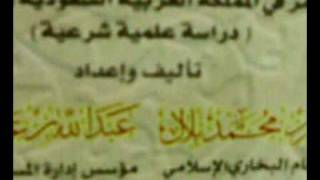 في المملكة العربية السعودية
( دراسة علمية شرعية )
تأليف وإعداد
محمد بلال عبد الله بن
البخاري الإسلامي مؤسس إدارة